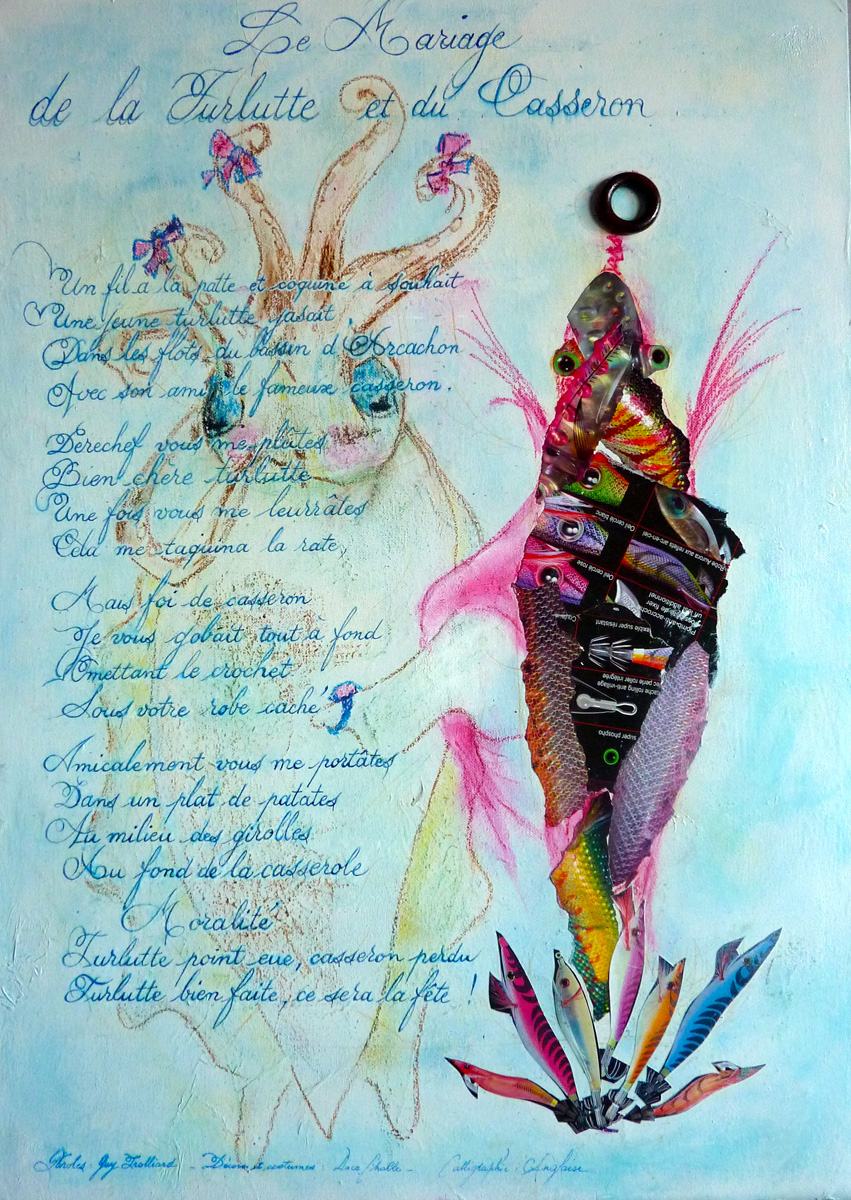 Le Mariage
de la Turlutte et du Casseron
Un fil à la patte et coquine à souhait
Une jeune turlutte jasait
Dans les flots du bassin d'Arcachon
Avec son ami le fameux casseron.
Derechef vous me plûtes
Bien chère turlutte
Une fois vous me leurrâtes
Cela me taquina la rate,
Mais foi de casseron
Je vous gobait tout à fond
Omettant le crochet
Sous votre robe caché
Amicalement vous me portâtes
Dans un plat de patates
Au milieu des girolles
Au fond de la casserole
Moralité
Turlutte point eue, casseron perdu
Turlutte bien faite, ce sera la fête !
Oeil cerclé blanc
Robe Aurora aux reflets arc-en-ciel
Oeil cerclé rose
super phospho
Paroles : Guy Tralliard - Décors et costumes : - Calligraphie : Anglaise